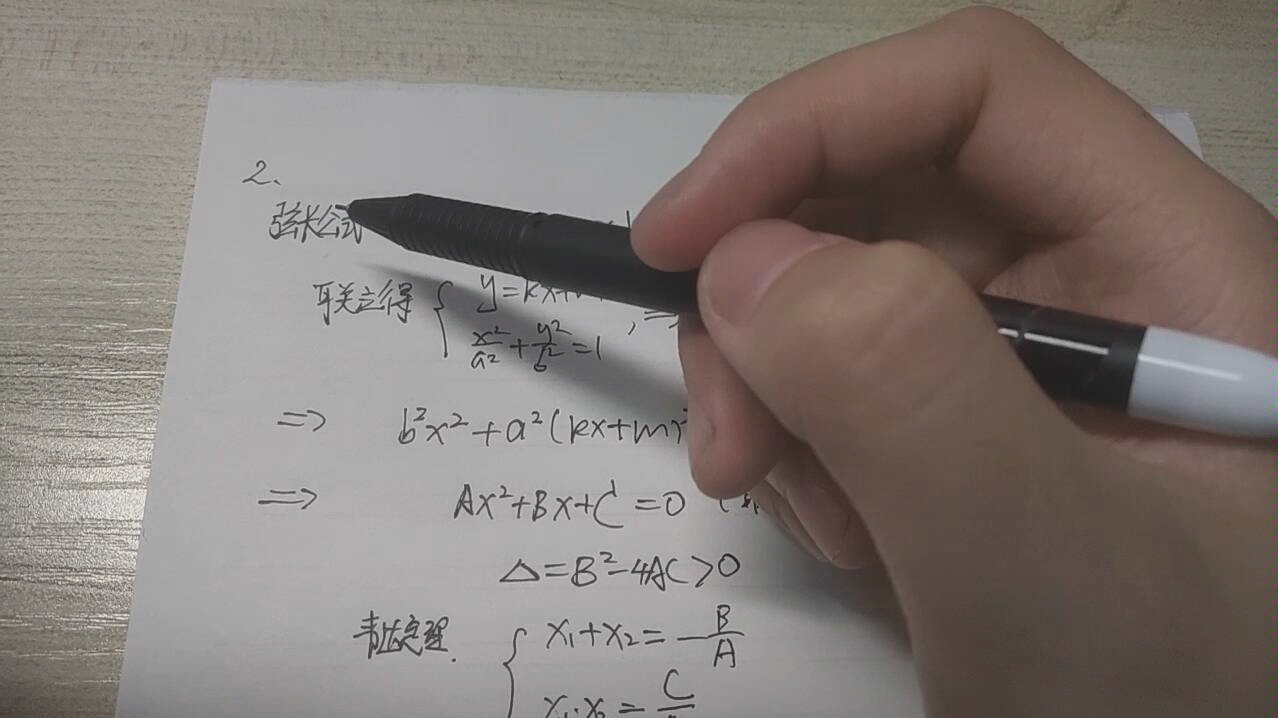 2、
弦长公式
联立得 { y=kx+m
x²/a² + y²/b² =1 , ⇒
⇒ b²x²+a²(kx+m)²
⇒ Ax²+Bx+C=0 (
Δ=B²-4AC>0
韦达定理. { x₁+x₂=-B/A
x₁·x₂=C/